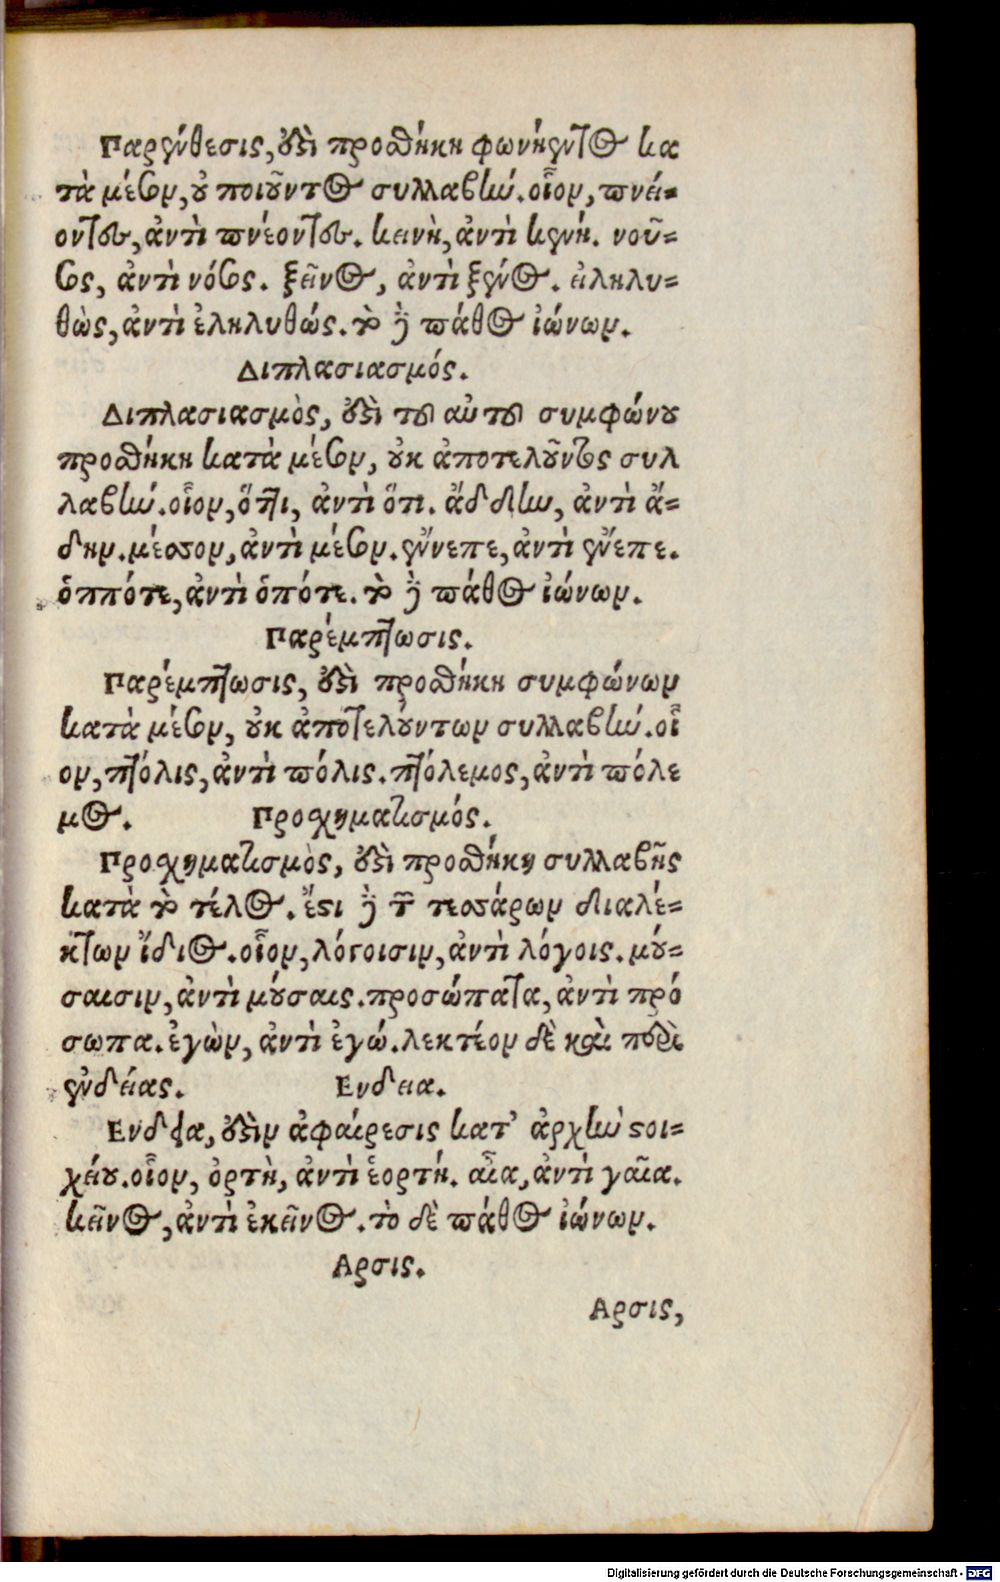 Παρένθεσις, ὅδὶ προσθήκη φωνήεντος κα
τὰ μέσον, οὐ ποιοῦντος συλλαβὴν. οἷον, πνεί-
οντος, ἀντὶ πνέοντος. κεινὴ, ἀντὶ κενή. νοῦ-
σος, ἀντὶ νόσος. ξεῖνος, ἀντὶ ξένος. εἰληλυ-
θὼς, ἀντὶ ἐληλυθώς. τὸ δὲ πάθος ἰώνων.
Διπλασιασμός.
Διπλασιασμὸς, ὅδὶ τοῦ αὐτοῦ συμφώνου
προσθήκη κατὰ μέσον, οὐκ ἀποτελοῦντος συλ
λαβὴν. οἷον, ὅττι, ἀντὶ ὅτι. ἄδδην, ἀντὶ ἄ-
δην. μέσσον, ἀντὶ μέσον. ἔννεπε, ἀντὶ ἔνεπε.
ὁππότε, ἀντὶ ὁπότε. τὸ δὲ πάθος ἰώνων.
Παρέμπτωσις.
Παρέμπτωσις, ὅδὶ προσθήκη συμφώνων
κατὰ μέσον, οὐκ ἀποτελούντων συλλαβὴν. οἷ
ον, πτόλις, ἀντὶ πόλις. πτόλεμος, ἀντὶ πόλε
μος. Προσχηματισμός.
Προσχηματισμὸς, ὅδὶ προσθήκη συλλαβῆς
κατὰ τὸ τέλος. ἔστι δὲ τῶν τεσσάρων διαλέ-
κτων ἴδιος. οἷον, λόγοισιν, ἀντὶ λόγοις. μού-
σαισιν, ἀντὶ μούσαις. προσώπατα, ἀντὶ πρό
σωπα. ἐγὼν, ἀντὶ ἐγώ. λεκτέον δὲ καὶ περὶ
ἐνδείας. Ενδεια.
Ενδεια, ὅδὶν ἀφαίρεσις κατ’ ἀρχὴν στοι-
χείου. οἷον, ὀρτὴ, ἀντὶ ἑορτή. αἶα, ἀντὶ γαῖα.
κεῖνος, ἀντὶ ἐκεῖνος. τὸ δὲ πάθος ἰώνων.
Αρσις.
Αρσις,
Digitalisierung gefördert durch die Deutsche Forschungsgemeinschaft - DFG